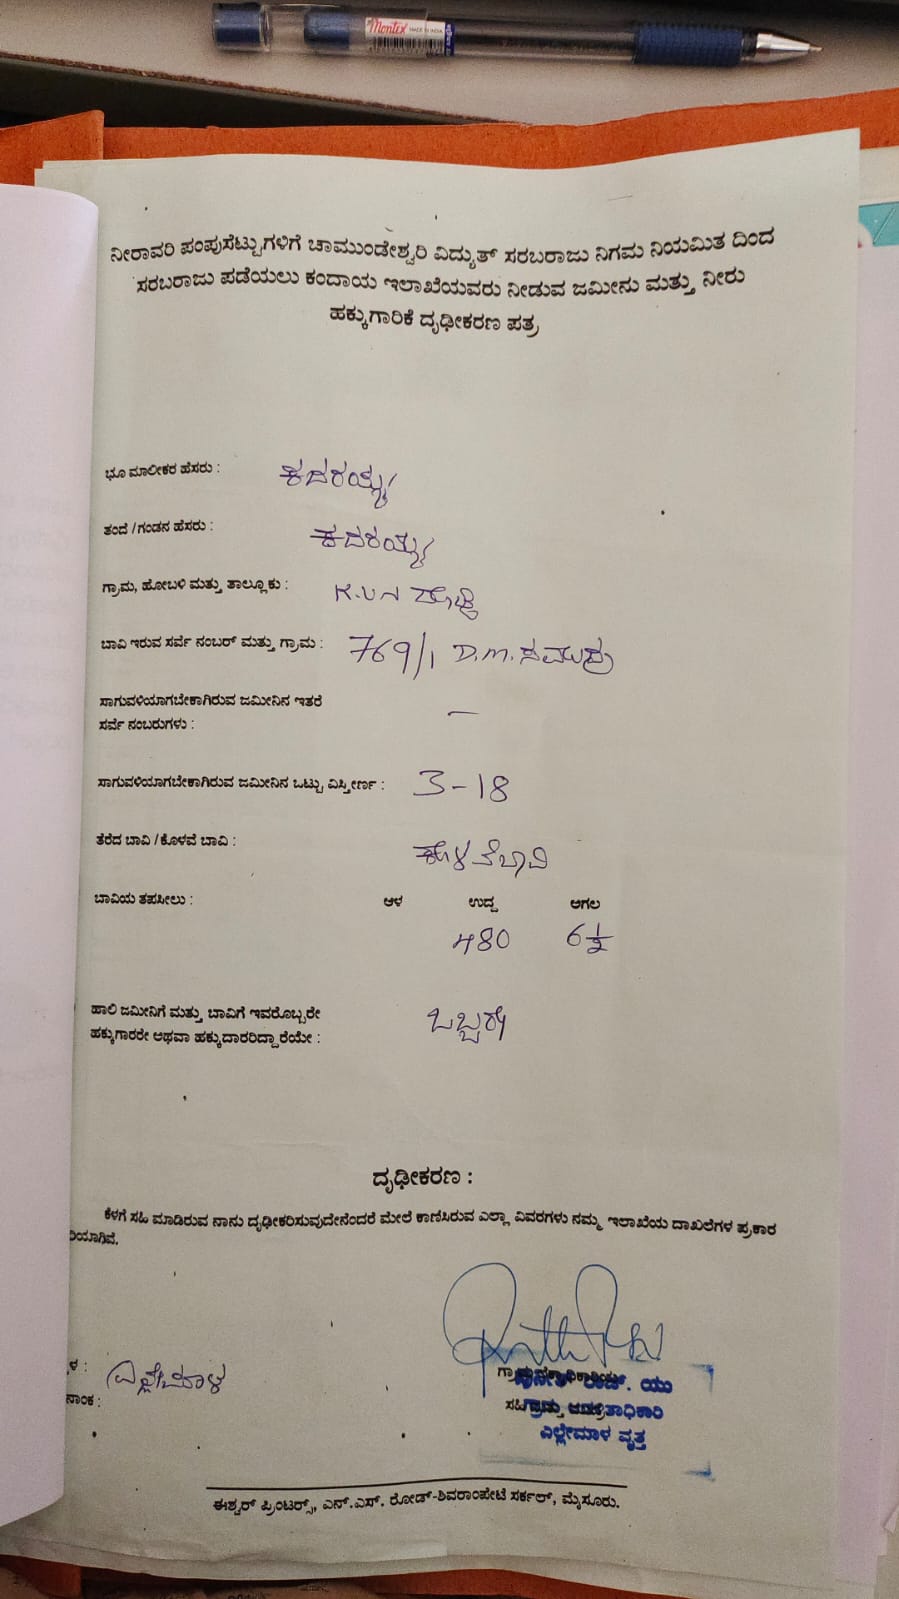 Montex MADE IN INDIA
ನೀರಾವರಿ ಪಂಪುಸೆಟ್ಟುಗಳಿಗೆ ಚಾಮುಂಡೇಶ್ವರಿ ವಿದ್ಯುತ್ ಸರಬರಾಜು ನಿಗಮ ನಿಯಮಿತ ದಿಂದ
ಸರಬರಾಜು ಪಡೆಯಲು ಕಂದಾಯ ಇಲಾಖೆಯವರು ನೀಡುವ ಜಮೀನು ಮತ್ತು ನೀರು
ಹಕ್ಕುಗಾರಿಕೆ ದೃಢೀಕರಣ ಪತ್ರ
ಭೂ ಮಾಲೀಕರ ಹೆಸರು : ಕದರಯ್ಯ
ತಂದೆ / ಗಂಡನ ಹೆಸರು : ಕದರಯ್ಯ
ಗ್ರಾಮ, ಹೋಬಳಿ ಮತ್ತು ತಾಲ್ಲೂಕು :
ಬಾವಿ ಇರುವ ಸರ್ವೆ ನಂಬರ್ ಮತ್ತು ಗ್ರಾಮ : 769/1 D.M. ಸಮುದ್ರ
ಸಾಗುವಳಿಯಾಗಬೇಕಾಗಿರುವ ಜಮೀನಿನ ಇತರೆ
ಸರ್ವೆ ನಂಬರುಗಳು : —
ಸಾಗುವಳಿಯಾಗಬೇಕಾಗಿರುವ ಜಮೀನಿನ ಒಟ್ಟು ವಿಸ್ತೀರ್ಣ : 3-18
ತೆರೆದ ಬಾವಿ / ಕೊಳವೆ ಬಾವಿ : ಕೊಳವೆಬಾವಿ
ಬಾವಿಯ ತಪಸೀಲು : ಆಳ ಉದ್ದ ಅಗಲ
480 6½
ಹಾಲಿ ಜಮೀನಿಗೆ ಮತ್ತು ಬಾವಿಗೆ ಇವರೊಬ್ಬರೇ
ಹಕ್ಕುಗಾರರೇ ಅಥವಾ ಹಕ್ಕುದಾರರಿದ್ದಾರೆಯೇ : ಒಬ್ಬರೇ
ದೃಢೀಕರಣ :
ಕೆಳಗೆ ಸಹಿ ಮಾಡಿರುವ ನಾನು ದೃಢೀಕರಿಸುವುದೇನೆಂದರೆ ಮೇಲೆ ಕಾಣಿಸಿರುವ ಎಲ್ಲಾ ವಿವರಗಳು ನಮ್ಮ ಇಲಾಖೆಯ ದಾಖಲೆಗಳ ಪ್ರಕಾರ
ರಿಯಾಗಿವೆ.
ಳ : ಎಲ್ಲೇಮಾಳ
ನಾಂಕ :
ಯು
ಎಲ್ಲೇಮಾಳ ವೃತ್ತ
ಈಶ್ವರ್ ಪ್ರಿಂಟರ್ಸ್, ಎನ್.ಎಸ್. ರೋಡ್-ಶಿವರಾಂಪೇಟೆ ಸರ್ಕಲ್, ಮೈಸೂರು.